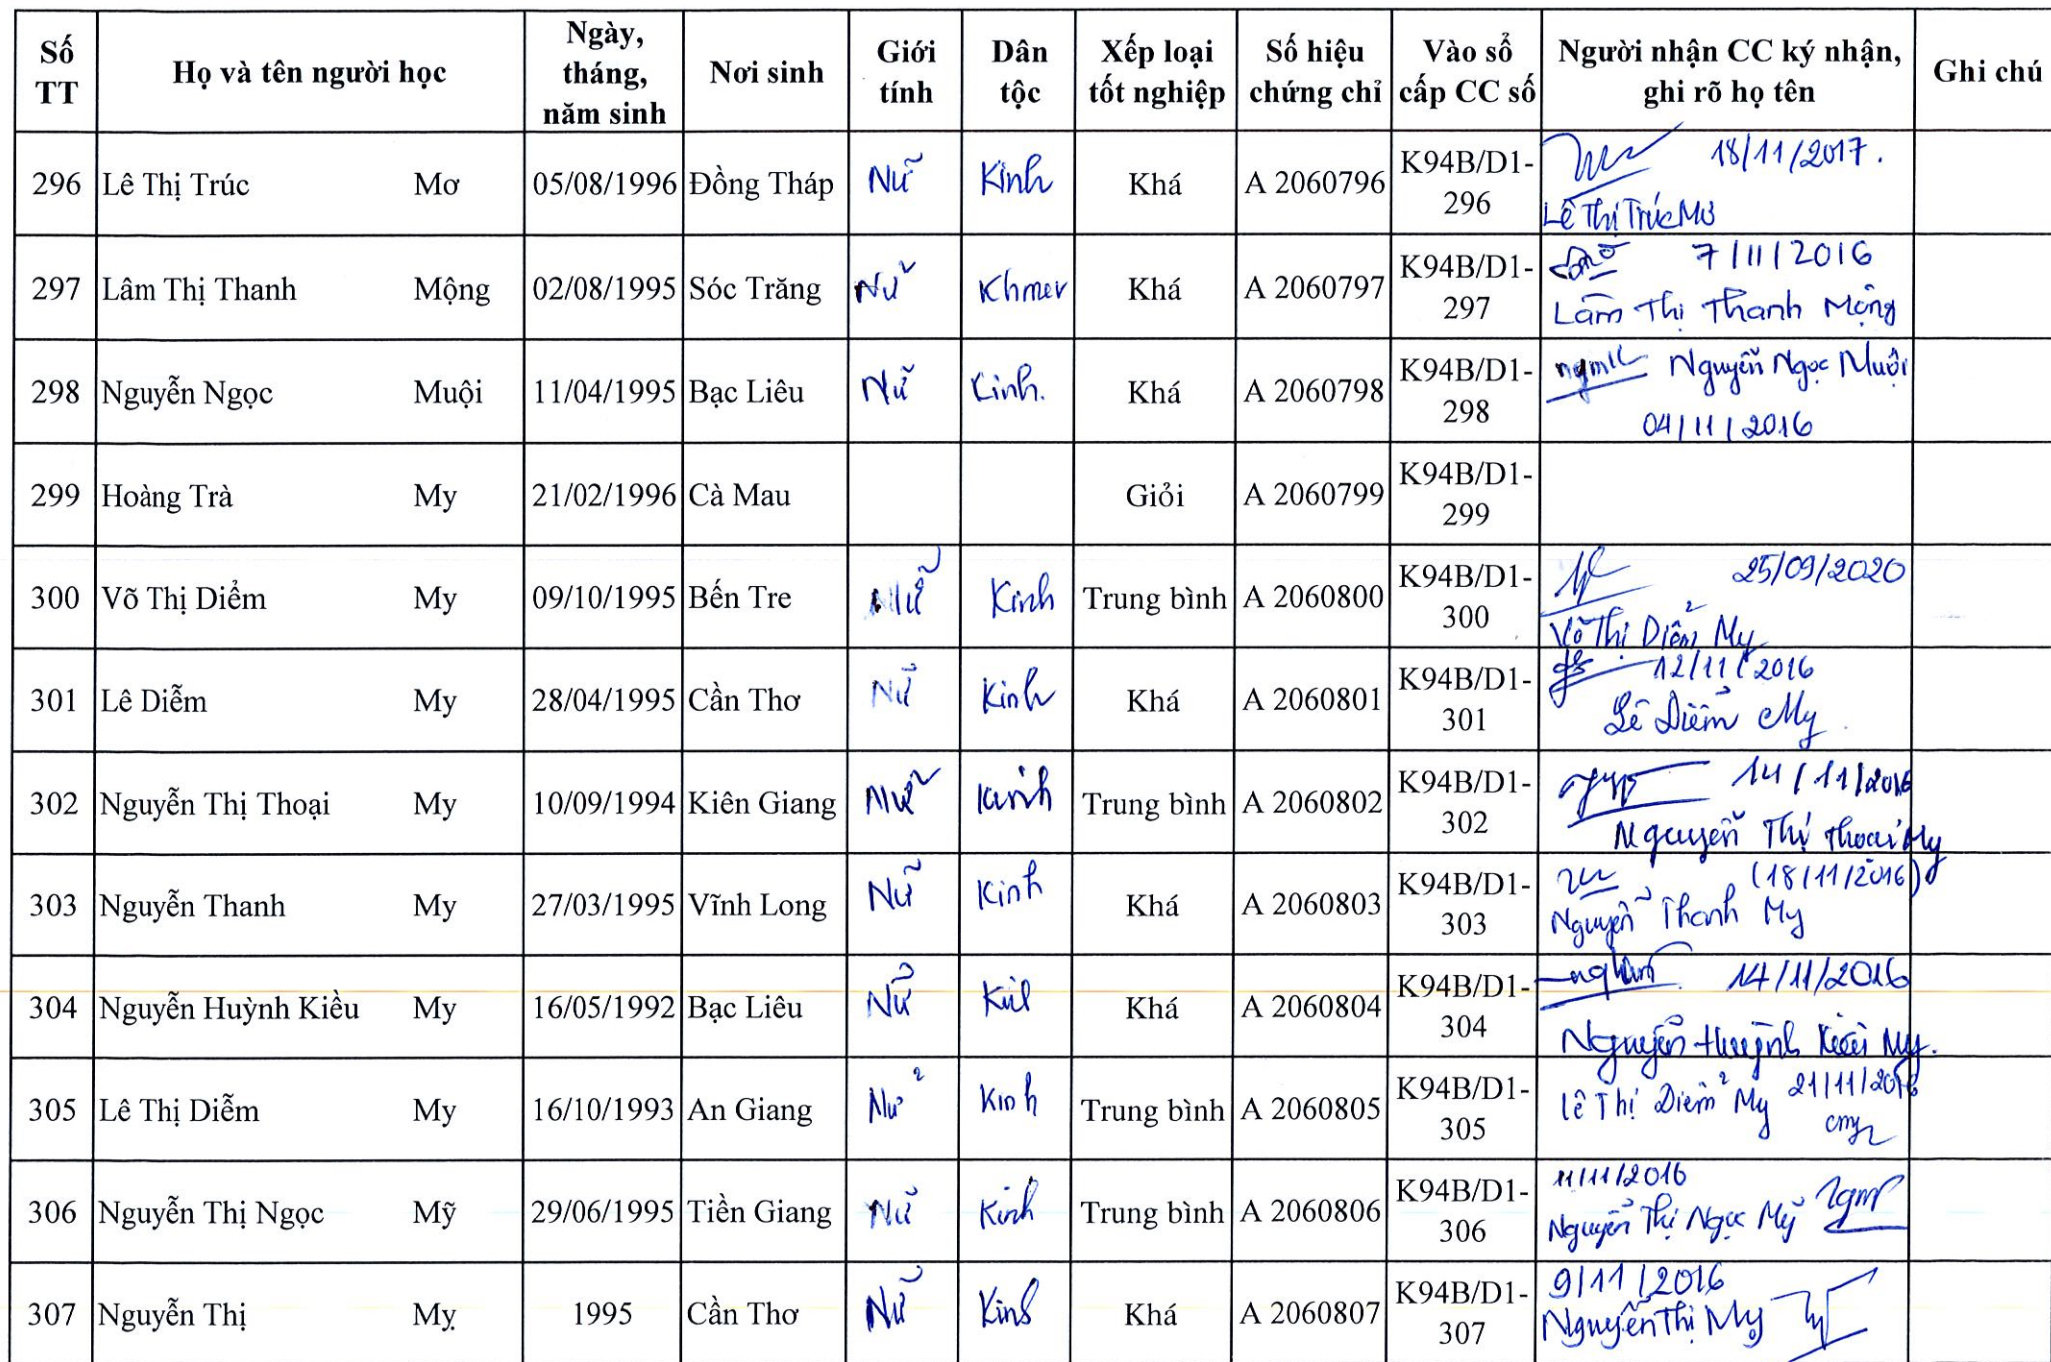 Số TT Họ và tên người học Ngày, tháng, năm sinh Nơi sinh Giới tính Dân tộc Xếp loại tốt nghiệp Số hiệu chứng chỉ Vào sổ cấp CC số Người nhận CC ký nhận, ghi rõ họ tên Ghi chú
296 Lê Thị Trúc Mơ 05/08/1996 Đồng Tháp Nữ Kinh Khá A 2060796 K94B/D1-296 18/11/2017.
Lê Thị Trúc Mơ
297 Lâm Thị Thanh Mộng 02/08/1995 Sóc Trăng Nữ Khmer Khá A 2060797 K94B/D1-297 7/11/2016
Lâm Thị Thanh Mộng
298 Nguyễn Ngọc Muội 11/04/1995 Bạc Liêu Nữ Kinh. Khá A 2060798 K94B/D1-298 Nguyễn Ngọc Muội
04/11/2016
299 Hoàng Trà My 21/02/1996 Cà Mau Giỏi A 2060799 K94B/D1-299
300 Võ Thị Diểm My 09/10/1995 Bến Tre Nữ Kinh Trung bình A 2060800 K94B/D1-300 25/09/2020
Võ Thị Diểm My
301 Lê Diễm My 28/04/1995 Cần Thơ Nữ Kinh Khá A 2060801 K94B/D1-301 12/11/2016
Lê Diễm My
302 Nguyễn Thị Thoại My 10/09/1994 Kiên Giang Nữ Kinh Trung bình A 2060802 K94B/D1-302 14/11/2016
Nguyễn Thị Thoại My
303 Nguyễn Thanh My 27/03/1995 Vĩnh Long Nữ Kinh Khá A 2060803 K94B/D1-303 (18/11/2016)
Nguyễn Thanh My
304 Nguyễn Huỳnh Kiều My 16/05/1992 Bạc Liêu Nữ Kinh Khá A 2060804 K94B/D1-304 14/11/2016
Nguyễn Huỳnh Kiều My.
305 Lê Thị Diễm My 16/10/1993 An Giang Nữ Kinh Trung bình A 2060805 K94B/D1-305 Lê Thị Diễm My 21/11/2016
306 Nguyễn Thị Ngọc Mỹ 29/06/1995 Tiền Giang Nữ Kinh Trung bình A 2060806 K94B/D1-306 11/11/2016
Nguyễn Thị Ngọc Mỹ
307 Nguyễn Thị Mỵ 1995 Cần Thơ Nữ Kinh Khá A 2060807 K94B/D1-307 9/11/2016
Nguyễn Thị Mỵ